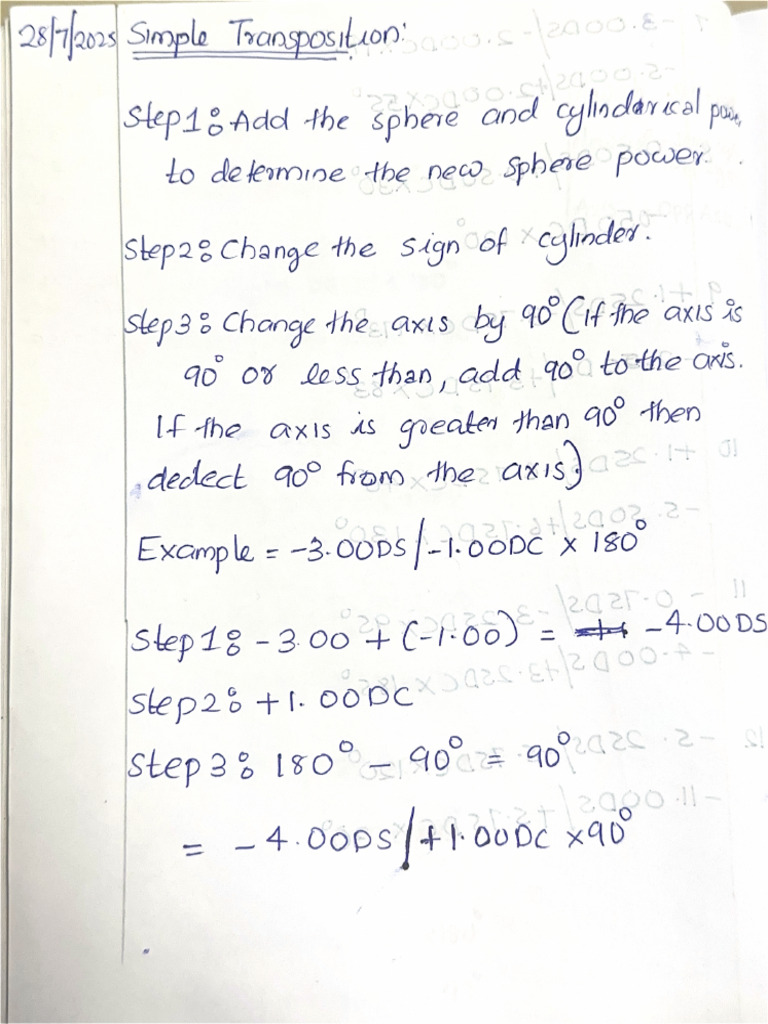 28/7/2025 Simple Transposition:
Step1: Add the sphere and cylindarical
to determine the new sphere power.
Step2: Change the sign of cylinder.
Step3: Change the axis by 90° (if the axis is
90° or less than, add 90° to the axis.
If the axis is greater than 90° then
dedect 90° from the axis)
Example = -3.00DS/-1.00DC x 180°
Step1: -3.00 + (-1.00) = -4.00DS
Step2: +1.00DC
Step3: 180° - 90° = 90°
= -4.00DS/+1.00DC x90°